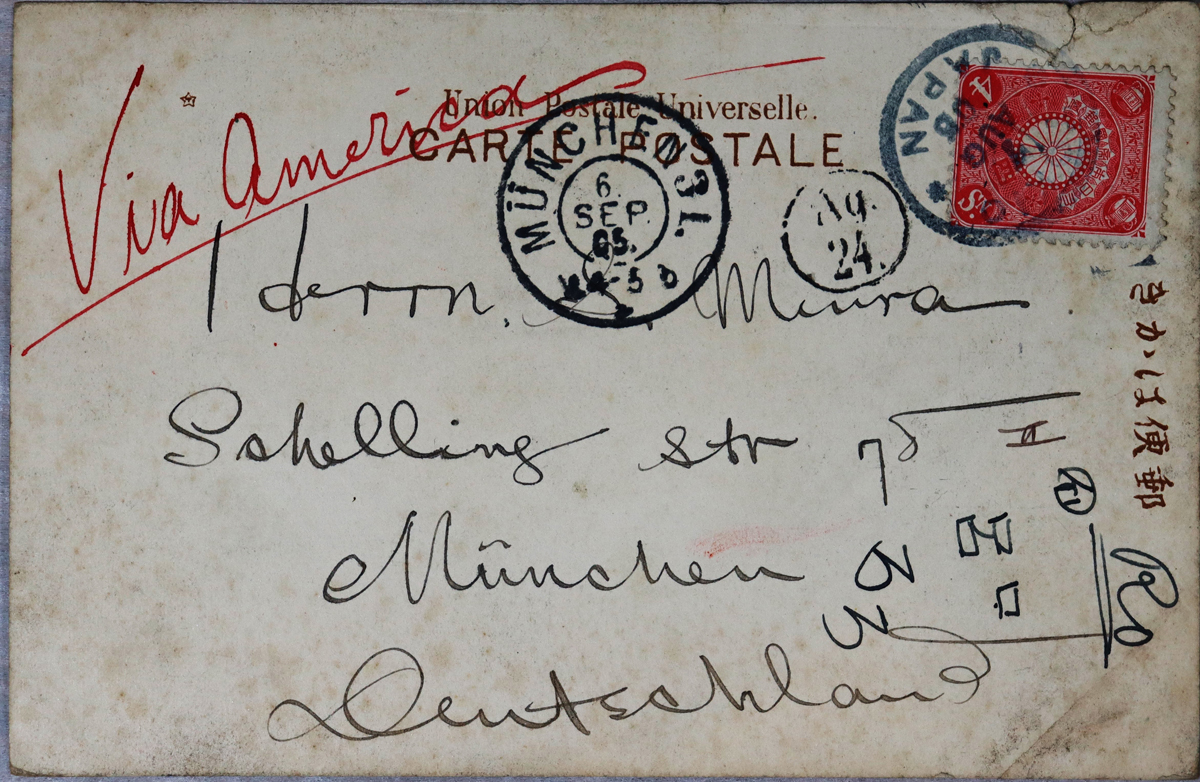 Via America
Union Postale Universelle.
CARTE POSTALE
MÜNCHEN 31.
6.
SEP.
05.
JAPAN
AUG
4
S.
Ag.
24.
Herrn. Miura
Schelling str 75
München
Deutschland
きかは便郵
II
53